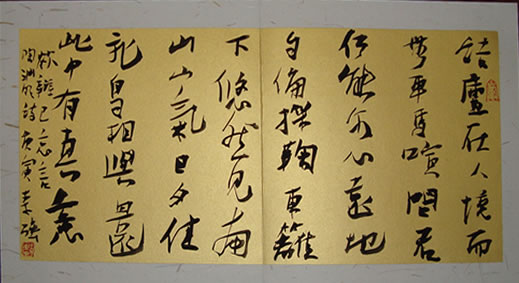 結廬在人境而
無車馬喧問君
何能爾心遠地
自偏採菊東籬
下悠然見南
山山氣日夕佳
飛鳥相與還
此中有真意
欲辨已忘言
陶淵明詩 庚寅